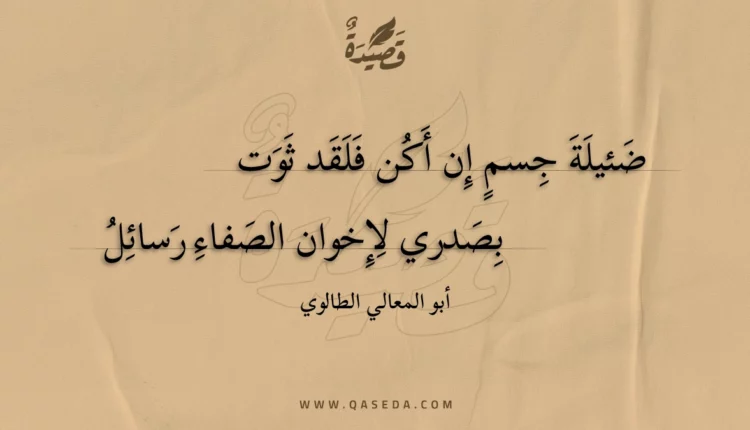 قَصِيدَةٌ
ضَئيلَةَ جِسمٍ إِن أَكُن فَلَقَد ثَوَت
بِصَدري لِإِخوان الصَفاءِ رَسائِلُ
أبو المعالي الطالوي
WWW.QASEDA.COM